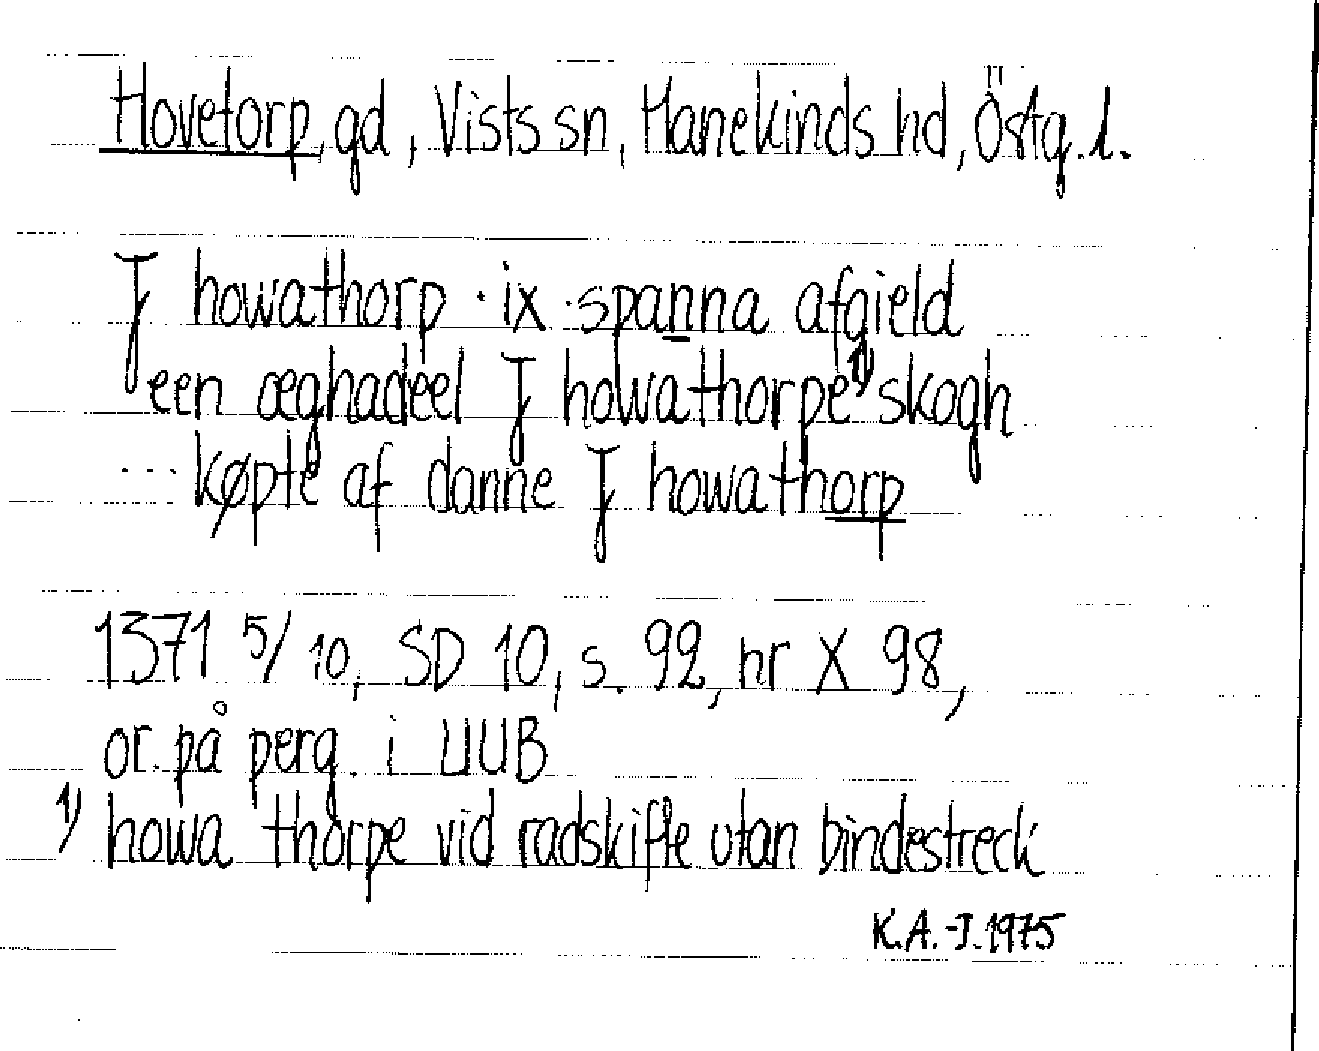 Hovetorp, gd, Vists sn, Hanekinds hd, Östg. l.
J howathorp · ix · spanna afgield
een æghadeel J howathorpe¹⁾ skogh
--- køpte af danne J howathorp
1371 5/10, SD 10, s. 92, nr X 98,
or. på perg. i UUB
1) howa thorpe vid radskifte utan bindestreck
K.A.-J. 1975